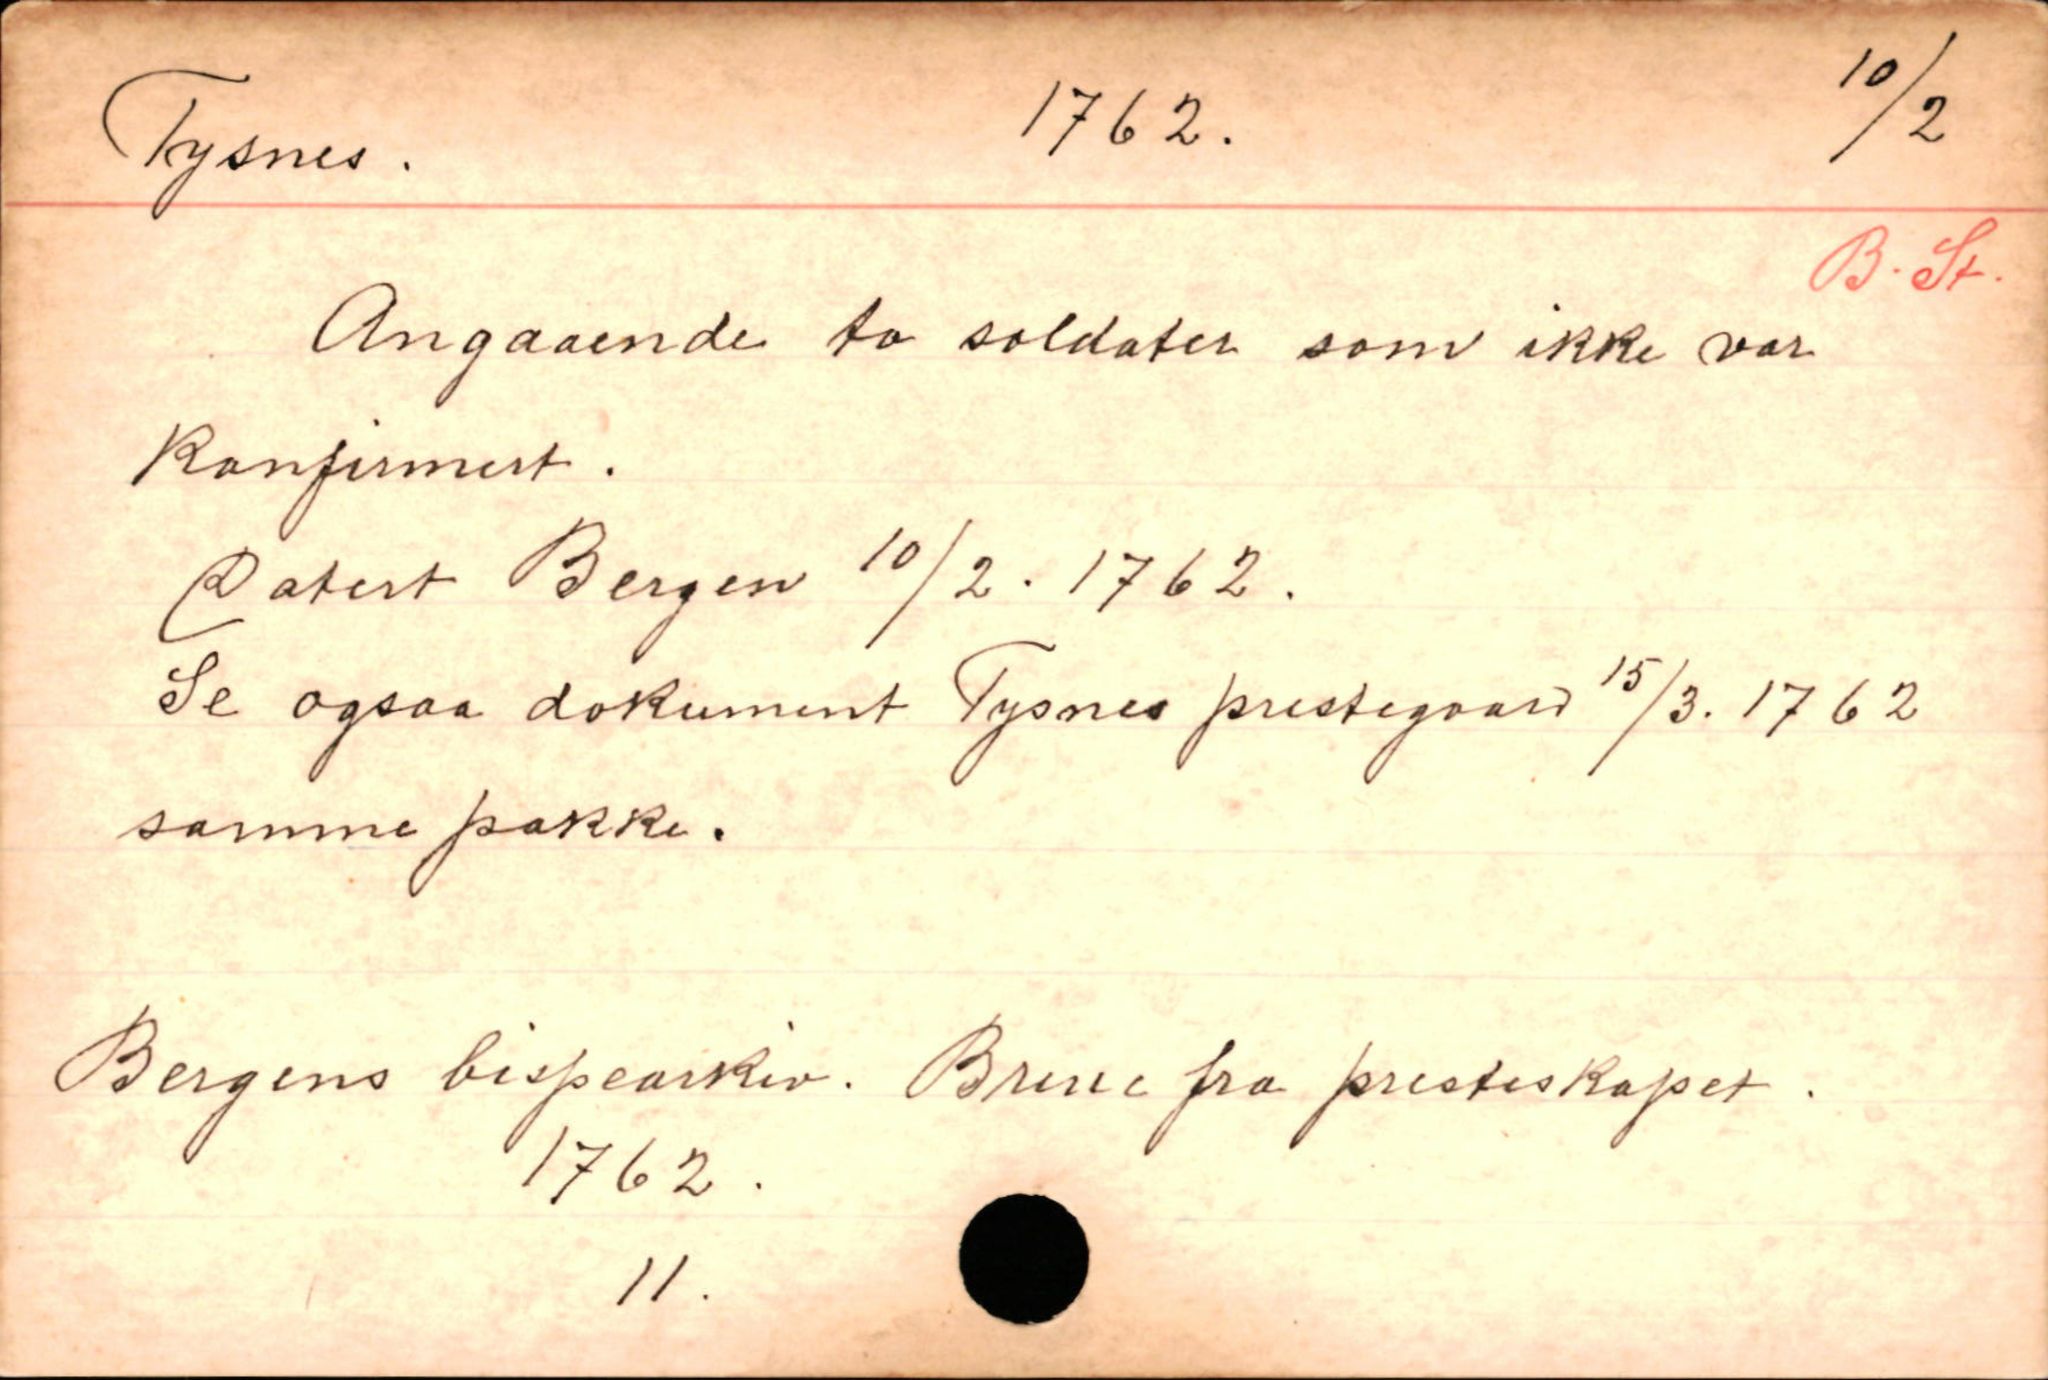 Tysnes. 1762. 10/2
B. St.
Angaaende to soldater som ikke var
konfirmert.
Datert Bergen 10/2. 1762.
Se ogsaa dokument Tysnes prestegaard 15/3. 1762
samme pakke.
Bergens bispearkiv. Breve fra presteskapet.
1762.
11.